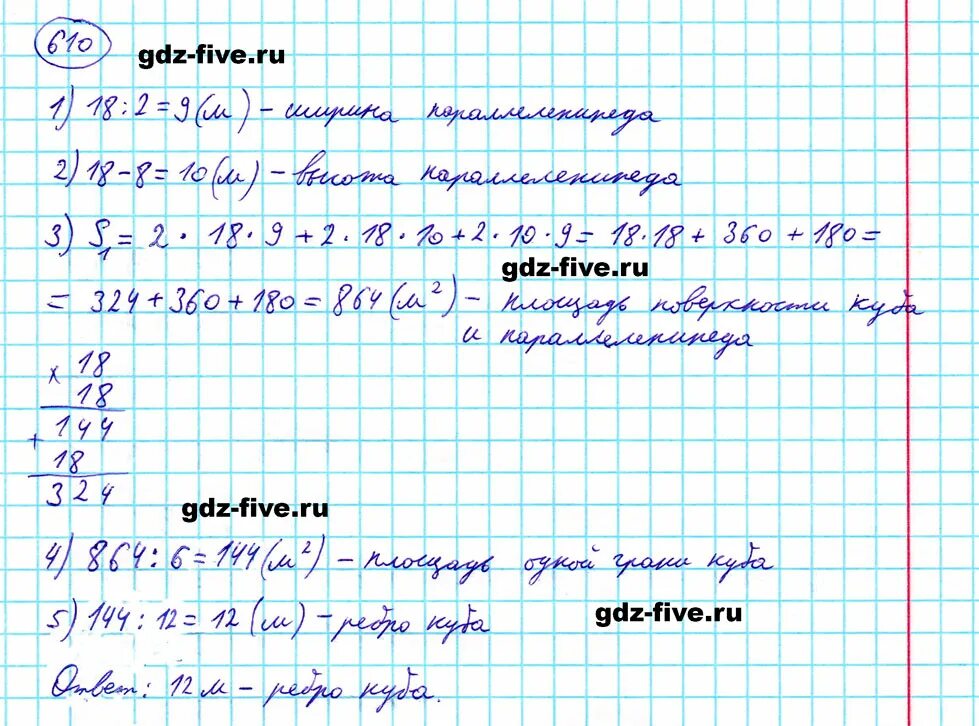 610
gdz-five.ru
1) 18:2=9(м) – ширина параллелепипеда
2) 18-8=10(м) – высота параллелепипеда
3) S₁ = 2 · 18 · 9 + 2 · 18 · 10 + 2 · 10 · 9 = 18·18 + 360 + 180 =
gdz-five.ru
= 324 + 360 + 180 = 864 (м²) – площадь поверхности куба
и параллелепипеда
x 18
18
+ 144
18
324
gdz-five.ru
4) 864 : 6 = 144 (м²) – площадь одной грани куба
gdz-five.ru
5) 144 : 12 = 12 (м) – ребро куба
Ответ: 12 м – ребро куба.